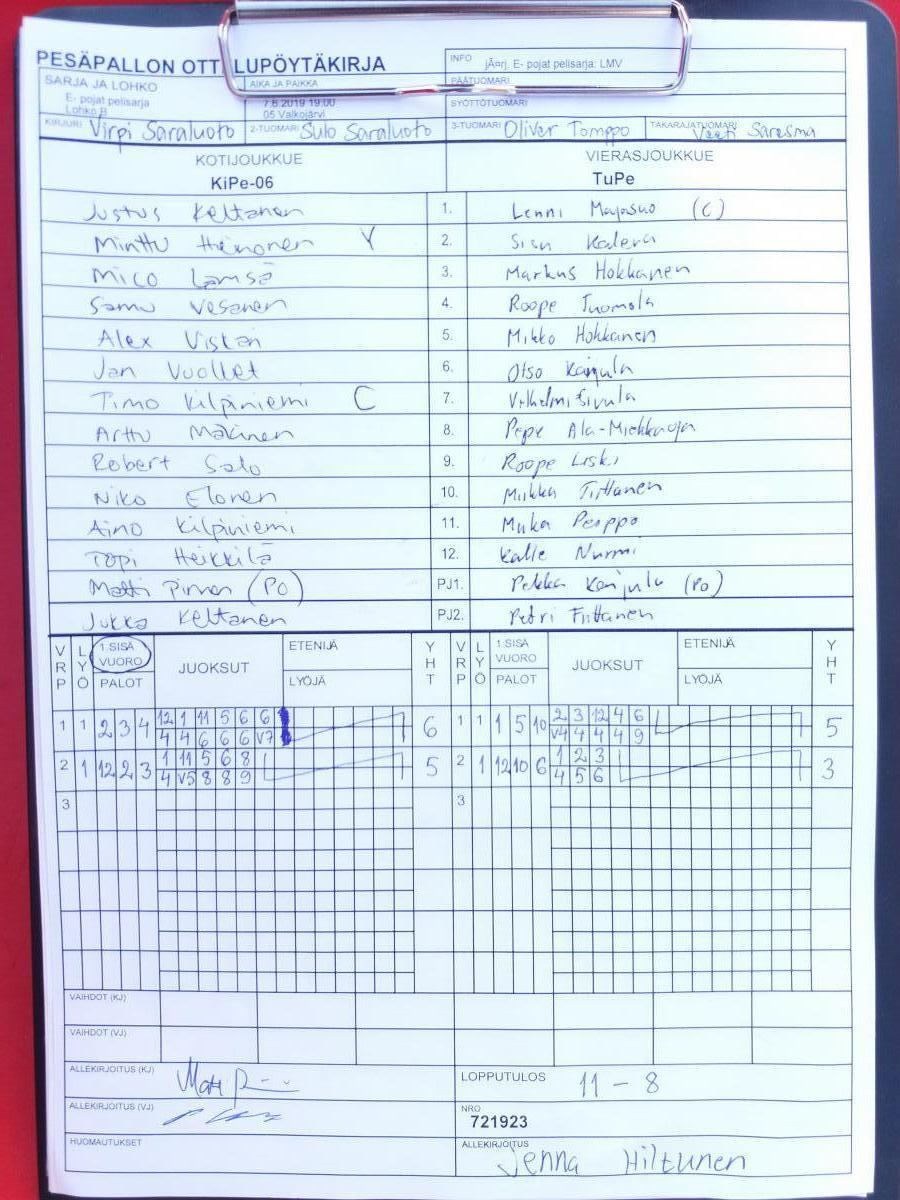 PESÄPALLON OTT LUPÖYTÄKIRJA
INFO jÃ¤rj. E- pojat pelisarja: LMV
SARJA JA LOHKO
E- pojat pelisarja
Lohko B
AIKA JA PAIKKA
7.6.2019 19:00
05 Valkojärvi
PÄÄTUOMARI
SYÖTTÖTUOMARI
KIRJURI Virpi Saraluoto 2-TUOMARI Sulo Saraluoto 3-TUOMARI Oliver Tomppo TAKARAJATUOMARI Veeti Saresma
KOTIJOUKKUE VIERASJOUKKUE
KiPe-06 TuPe
Justus Keltanen 1. Lenni Majasuo (C)
Minttu Heinonen V 2. Sisu Kaleva
Mico Lamsä 3. Markus Hokkanen
Samu Vesanen 4. Roope Tuomola
Alex Viskari 5. Mikko Hokkanen
Jan Vuollet 6. Otso Karjula
Timo Kilpiniemi C 7. Vilhelmi Sivula
Arttu Mäkinen 8. Pepe Ala-Miekkaoja
Robert Salo 9. Roope Liski
Niko Elonen 10. Miikka Tiittanen
Aino Kilpiniemi 11. Peippo
Topi Heikkilä 12. Kalle Nurmi
Matti (PO) PJ1. Pekka Karjula (PO)
Jukka Keltanen PJ2. Petri Tiittanen
VRP LYÖ 1.SISÄ VUORO PALOT JUOKSUT ETENIJÄ LYÖJÄ YHT VRP LYÖ 1.SISÄ VUORO PALOT JUOKSUT ETENIJÄ LYÖJÄ YHT
1 1 2 3 4 12 1 11 5 6 6 6 1 1 1 5 10 2 3 12 4 6 5
4 4 6 6 6 V7 V4 4 4 4 9
2 1 12 2 3 1 11 5 6 8 5 2 1 12 10 6 1 2 3 3
4 V5 8 8 9 4 5 6
3 3
VAIHDOT (KJ)
VAIHDOT (VJ)
ALLEKIRJOITUS (KJ) LOPPUTULOS 11 - 8
ALLEKIRJOITUS (VJ) NRO
721923
HUOMAUTUKSET ALLEKIRJOITUS
Jenna Hiltunen